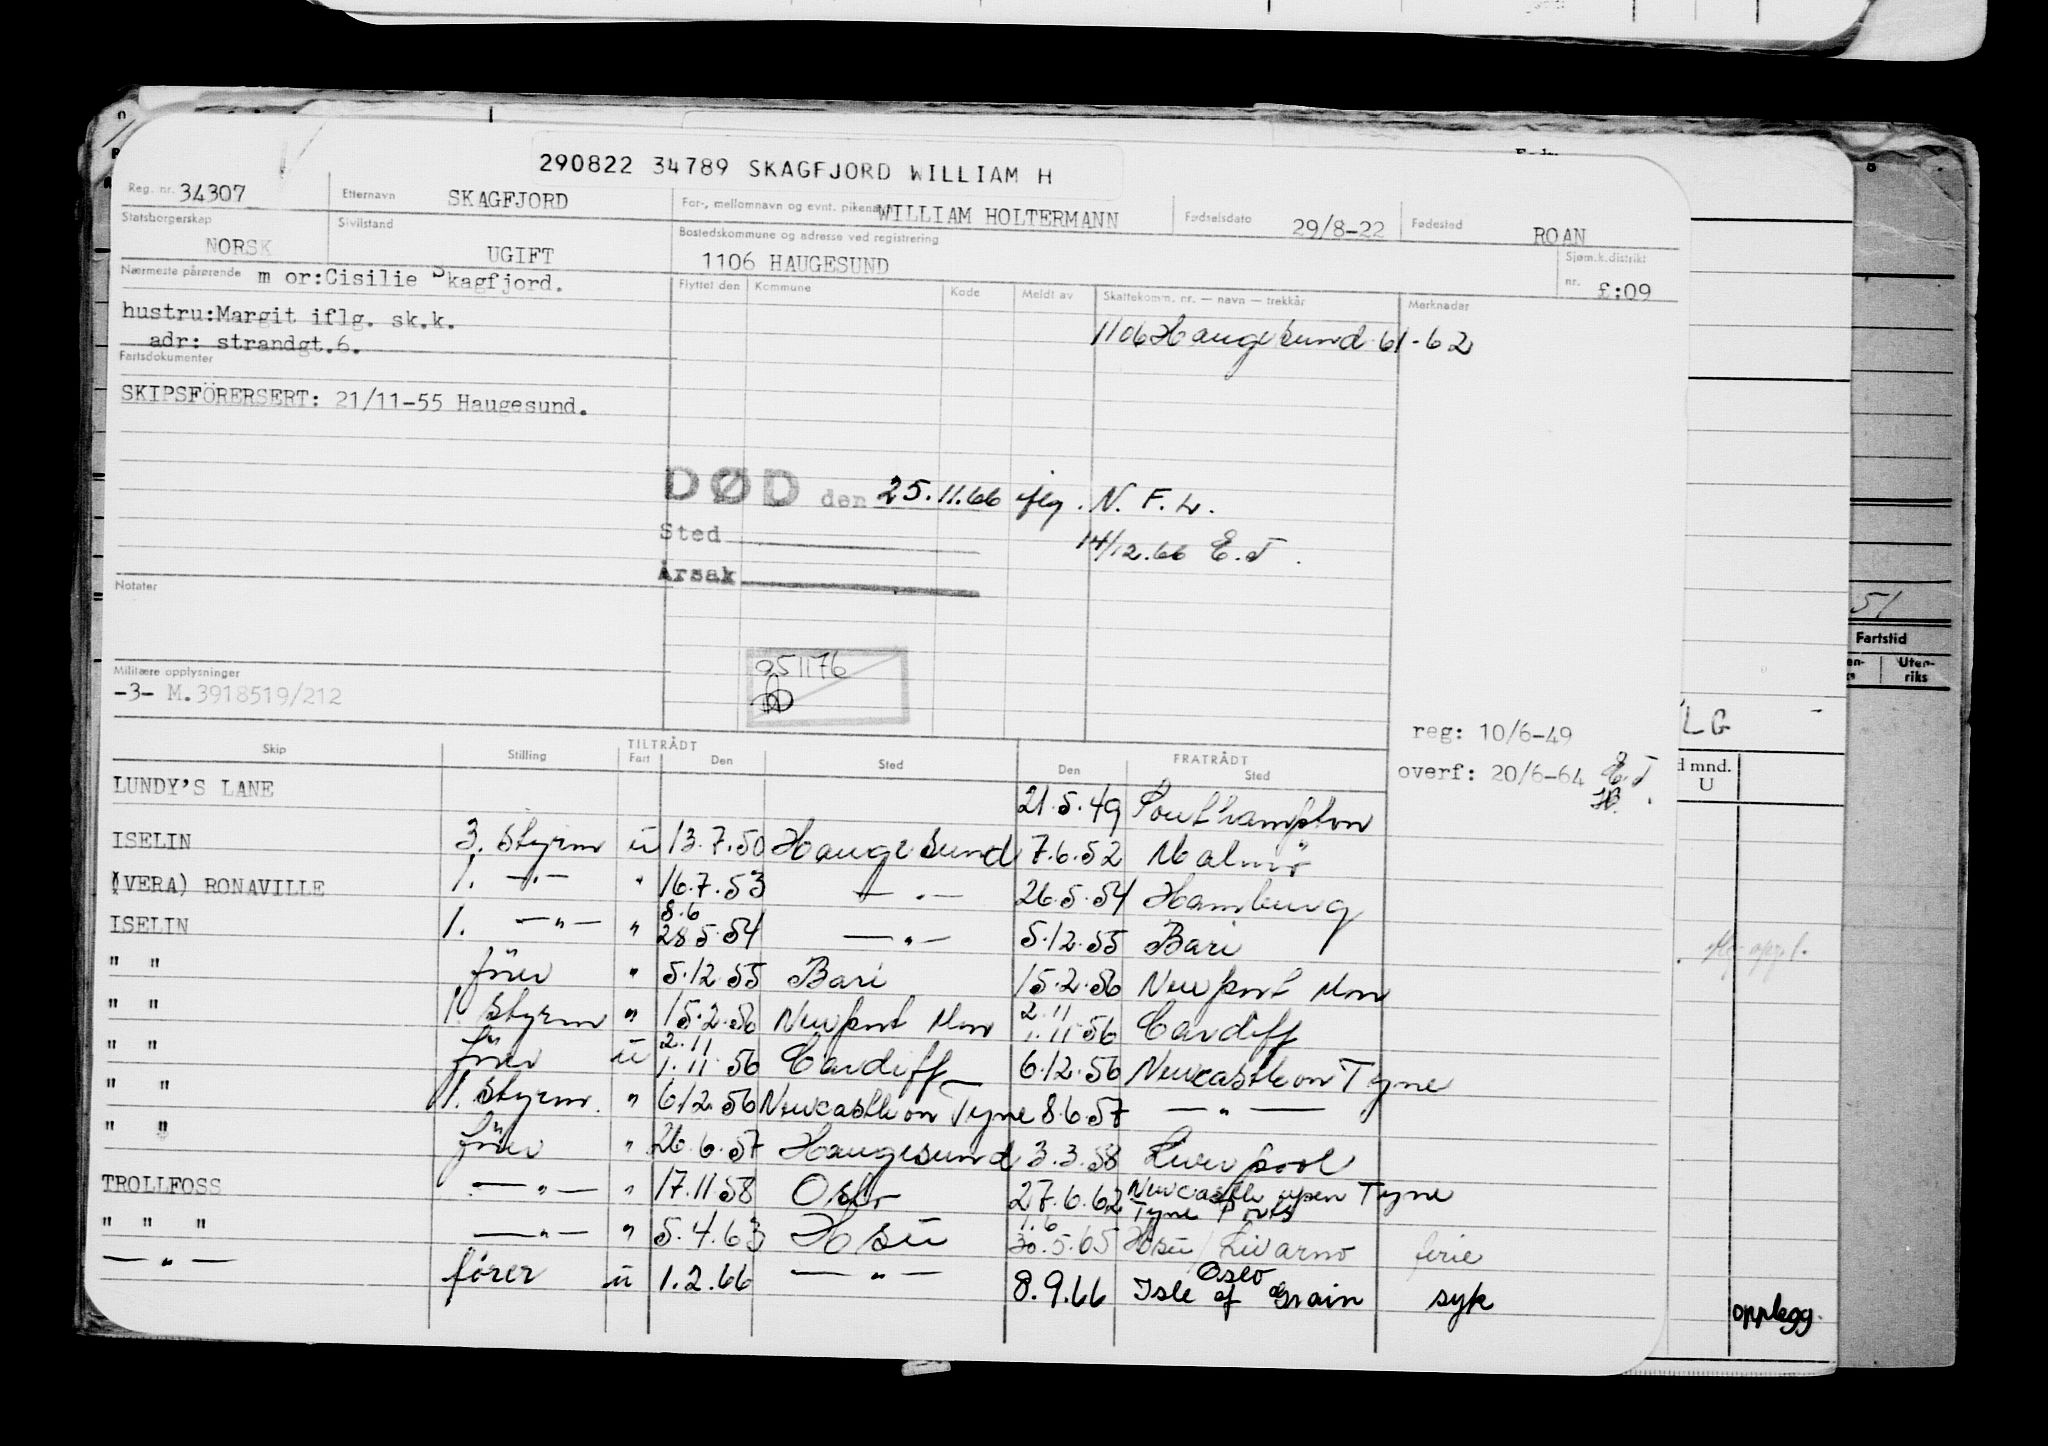 290822 34789 SKAGFJORD WILLIAM H
Reg. nr. 34307 Etternavn SKAGFJORD For-, mellomnavn og evnt. pikenavn WILLIAM HOLTERMANN Fødselsdato 29/8-22 Fødested ROAN
Statsborgerskap NORSK Sivilstand UGIFT Bostedskommune og adresse ved registrering 1106 HAUGESUND Sjøm.k.distrikt nr. £:09
Nærmeste pårørende m or:Cisilie Skagfjord.
hustru:Margit iflg. sk.k.
adr: strandgt.6.
Flyttet den Kommune Kode Meldt av Skattekomm. nr. — navn — trekkår Merknader
1106 Haugesund 61-62
Fartsdokumenter
SKIPSFÖRERSERT: 21/11-55 Haugesund.
DØD den 25.11.66 iflg. N. F. L.
Sted 14/12.66 E.T.
Årsak
Notater
951176
Militære opplysninger
-3- M.3918519/212
reg: 10/6-49
overf: 20/6-64 E.T.
Skip Stilling TILTRÅDT Fart Den Sted FRATRÅDT Den Sted
LUNDY'S LANE 21.5.49 Southampton
ISELIN 3. Styrm ü 13.7.50 Haugesund 7.6.52 Malmö
(VERA) RONAVILLE 1. —"— " 16.7.53 —"— 26.5.54 Hamburg
ISELIN 1. —"— " 8.6 28.5.54 —"— 5.12.55 Bari
" " förer " 5.12.55 Bari 15.2.56 Newport Mon
" " 1. Styrm " 15.2.56 Newport Mon 2.11 1.11.56 Cardiff
" " förer ü 2.11 1.11.56 Cardiff 6.12.56 Newcastle on Tyne
" " 1. Styrm. " 6.12.56 Newcastle on Tyne 8.6.57 —"—
" " förer " 26.6.57 Haugesund 3.3.58 Liverpool
TROLLFOSS —"— " 17.11.58 Oslo 27.6.62 Newcastle upon Tyne Tyne Ports
" " " —"— " 5.4.63 Hsü 1.6 30.5.65 Hsü / Livarno ferie
—"— fører ü 1.2.66 —"— 8.9.66 Oslo Isle of Grain syk
51
Fartstid
Uten-
riks
LG
d mnd.
U
opplegg.